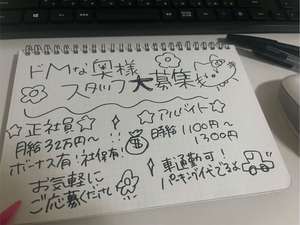 ドMな奥様
スタッフ大募集
☆正社員☆
月給32万円〜
ボーナス有!社保有!
お気軽に
ご応募ください
☆アルバイト☆
時給1100円〜
1300円
車通勤可!
パーキング代でるよ